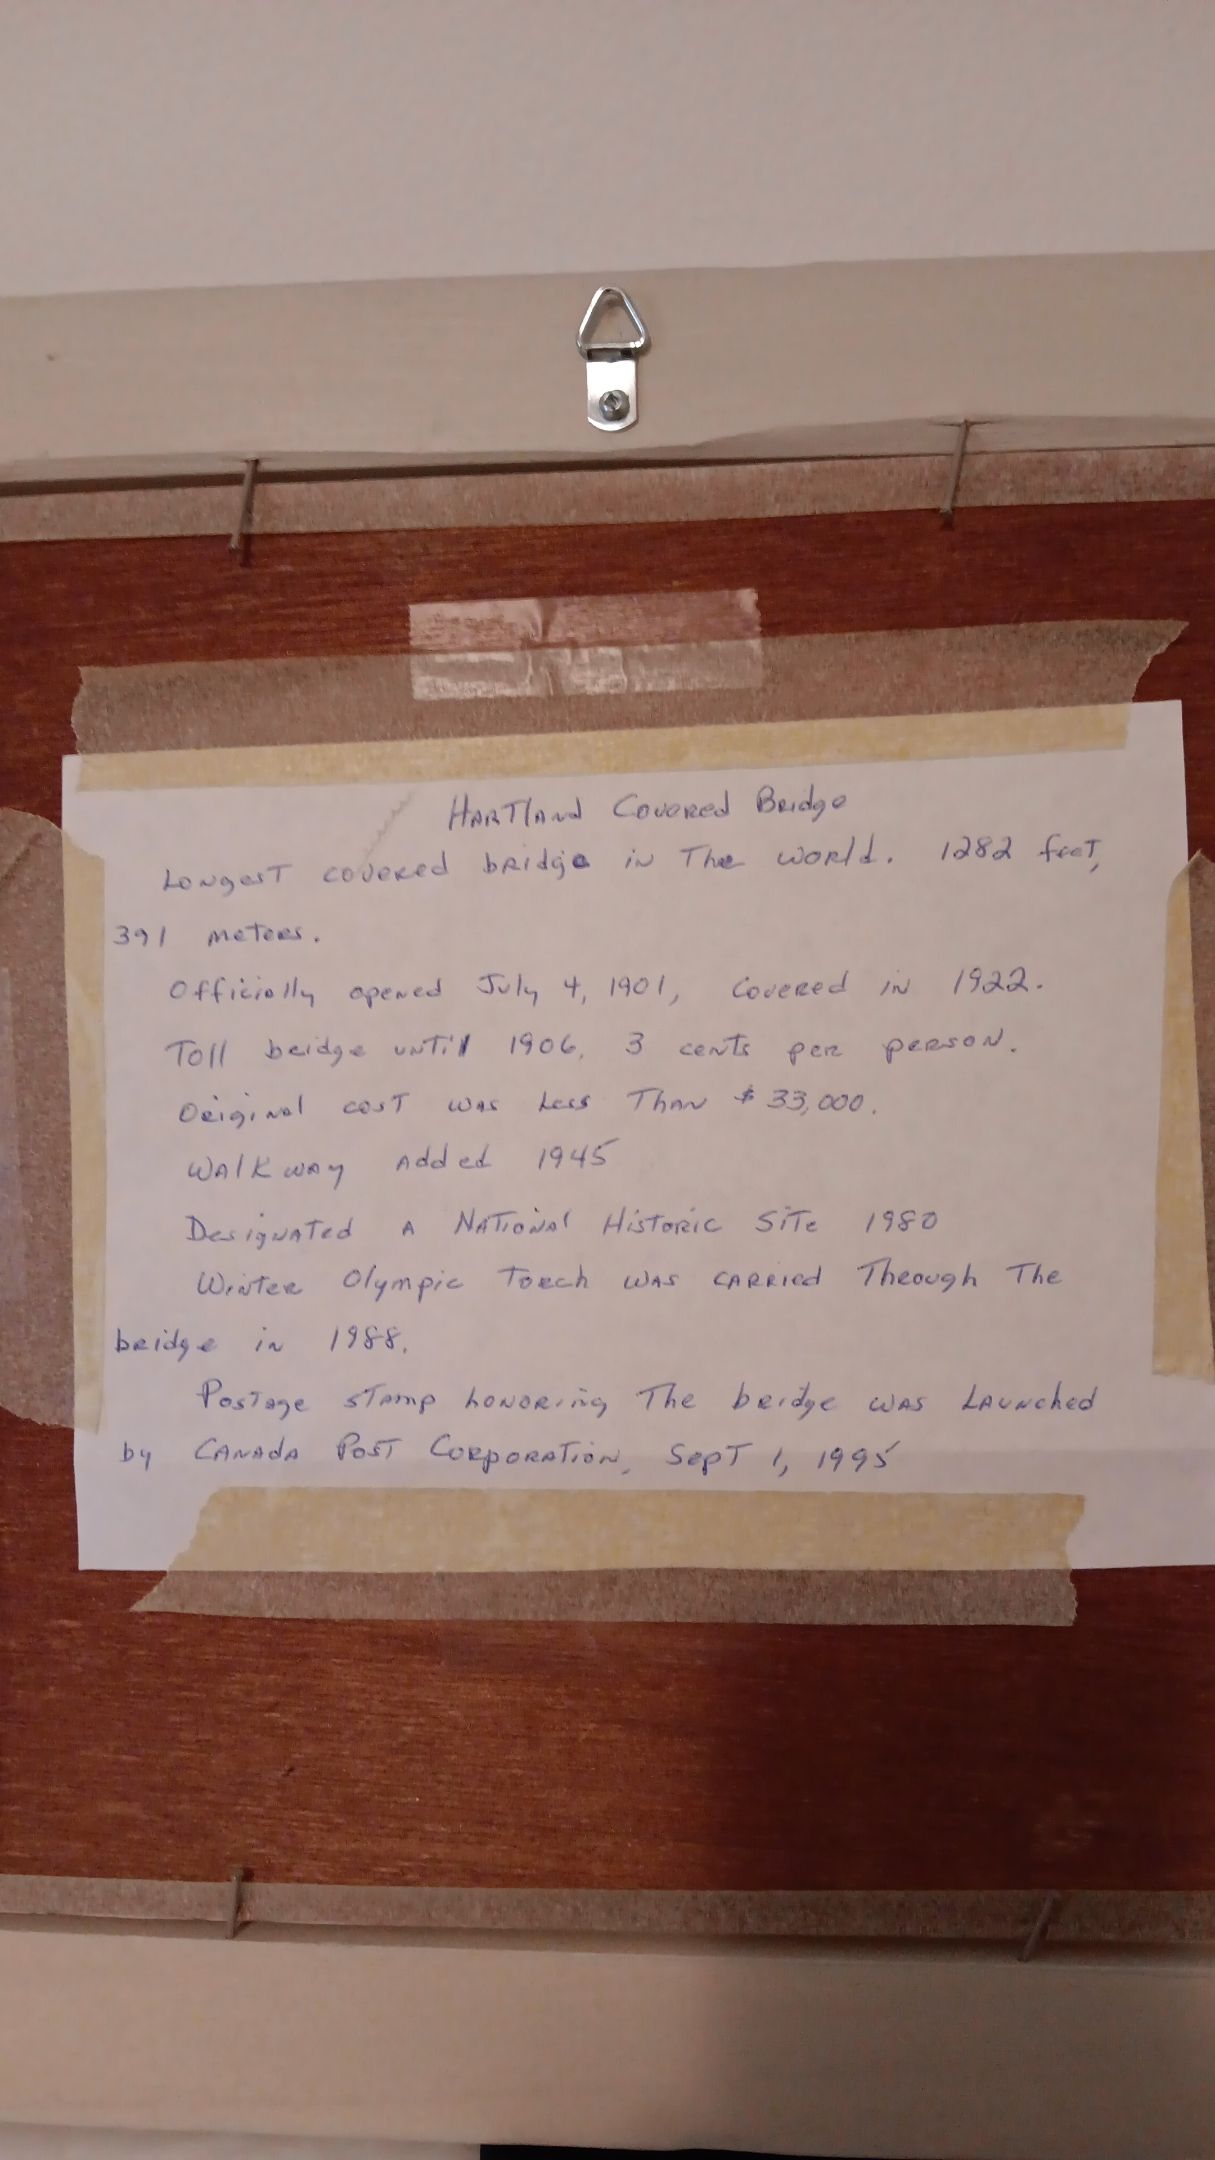 Hartland Covered Bridge
Longest covered bridge in the world. 1282 feet,
391 meters.
Officially opened July 4, 1901, covered in 1922.
Toll bridge until 1906, 3 cents per person.
Original cost was less than $33,000.
Walkway added 1945
Designated a National Historic Site 1980
Winter Olympic torch was carried through the
bridge in 1988.
Postage stamp honoring the bridge was launched
by Canada Post Corporation, Sept 1, 1995